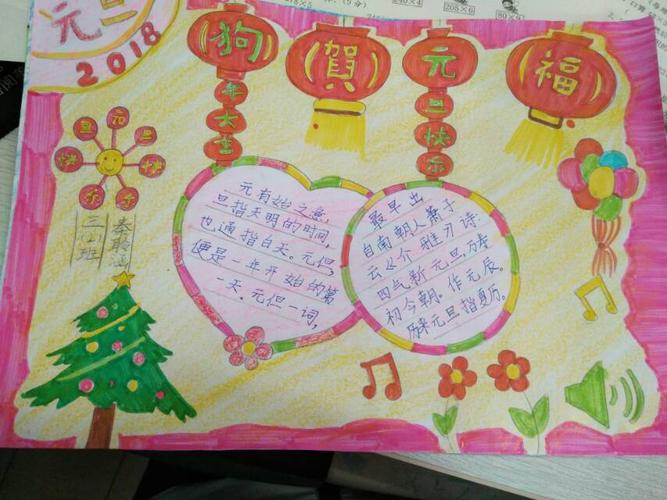 元旦
2018
狗年大吉
賀
元旦快乐
福
旦元旦
快快
乐乐
三(1)班
元有始之意,
旦指天明的时间,
也通指白天。元但,
便是一年开始的第
一天。元但一词,
最早出
自南朝人萧子
云《介雅》诗:
四气新元旦,万寿
初今朝。作元辰。
历来元旦指夏历。
205×6
80×9